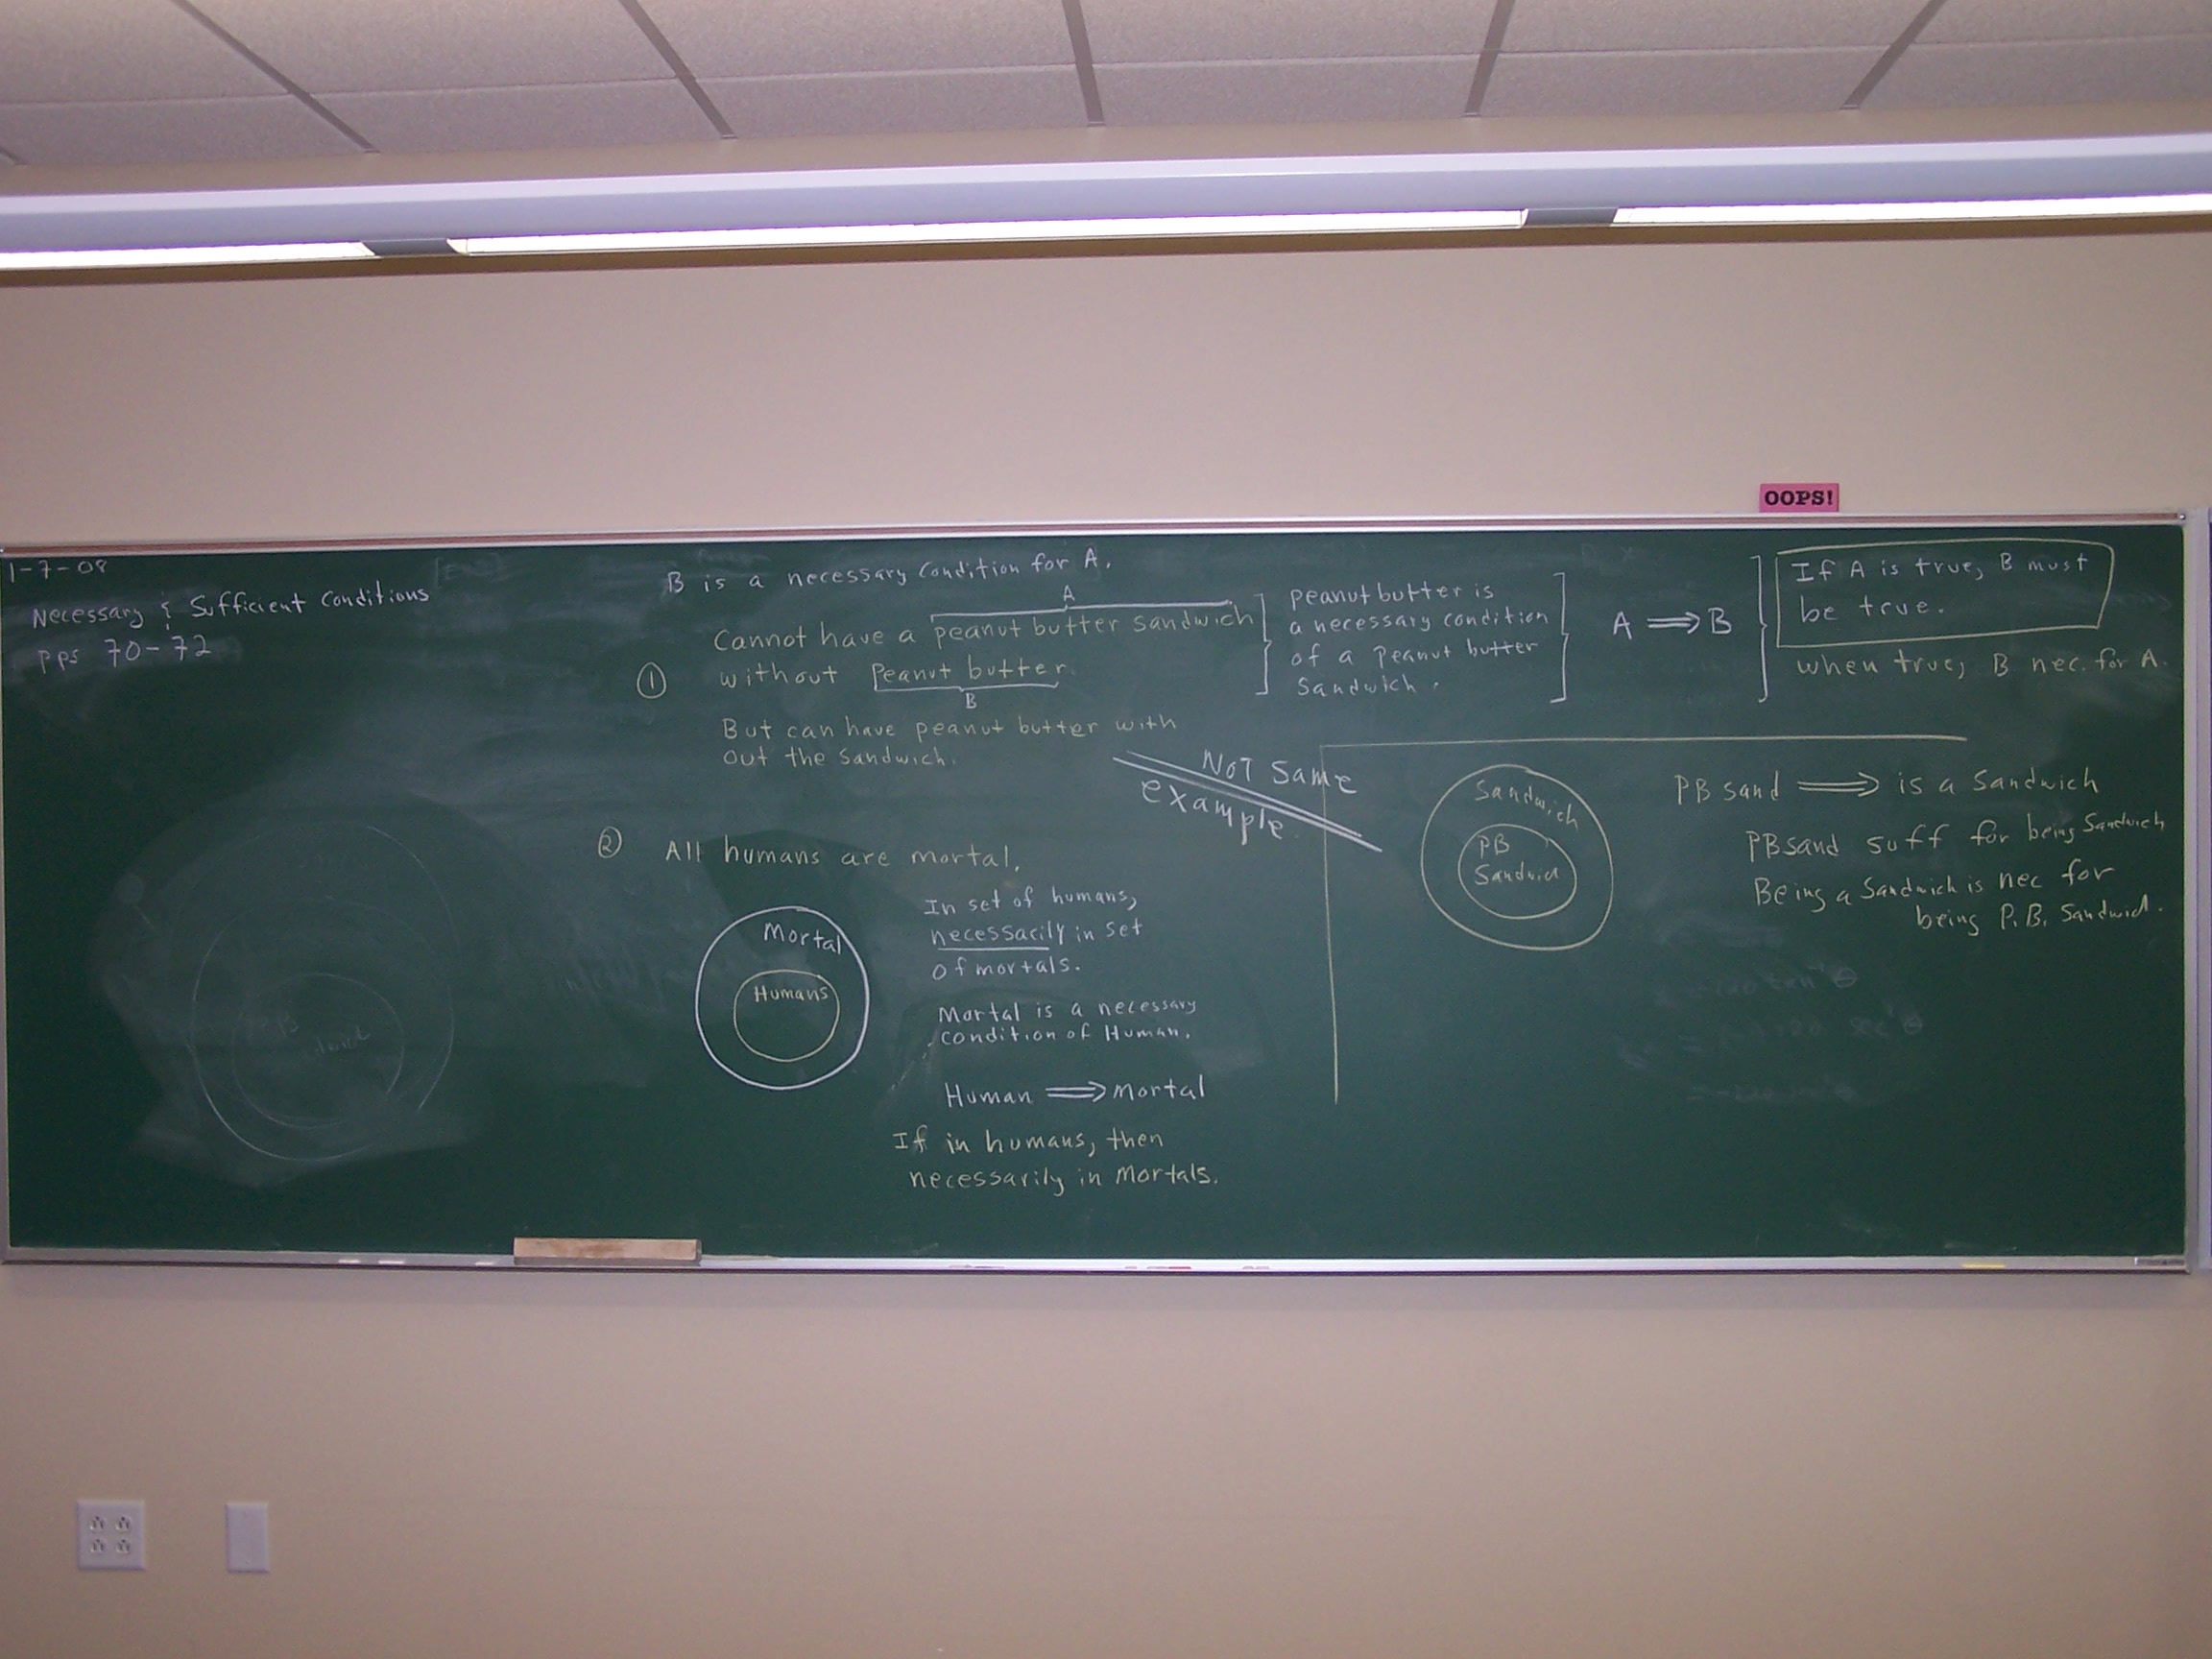 OOPS!
1-7-08
Necessary & Sufficient Conditions
pps 70-72
B is a necessary condition for A.
A
Cannot have a peanut butter sandwich
① without Peanut butter.
B
But can have peanut butter with
out the sandwich.
peanut butter is
a necessary condition
of a Peanut butter
Sandwich.
A ⟹ B
If A is true, B must
be true.
when true, B nec. for A.
NOT Same
example
② All humans are mortal.
Mortal
Humans
In set of humans,
necessarily in set
of mortals.
Mortal is a necessary
condition of Human.
Human ⟹ Mortal
If in humans, then
necessarily in Mortals.
Sandwich
PB
Sandwich
PB sand ⟹ is a Sandwich
PBsand suff for being Sandwich
Being a Sandwich is nec for
being P.B. Sandwich.